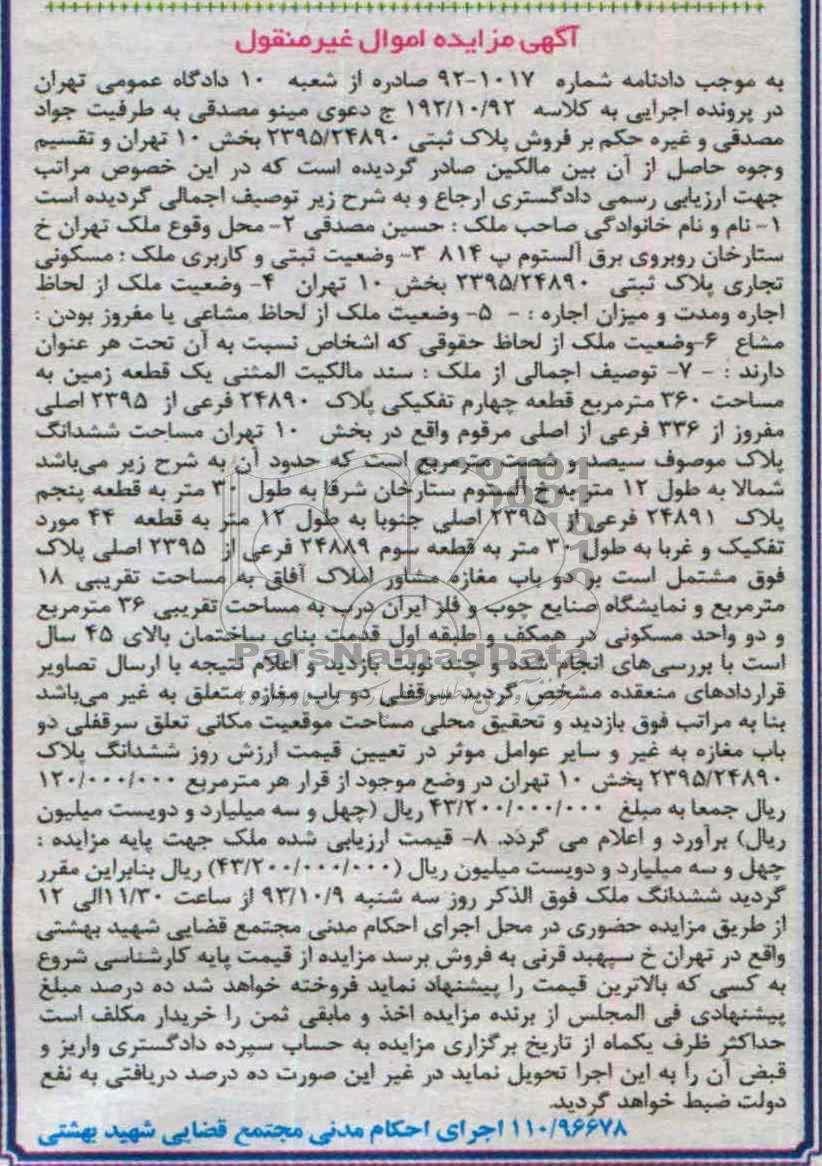 آگهی مزایده اموال غیرمنقول
به موجب دادنامه شماره ۱۰۱۷-۹۲ صادره از شعبه ۱۰ دادگاه عمومی تهران
در پرونده اجرایی به کلاسه ۱۹۲/۱۰/۹۲ ج دعوی مینو مصدقی به طرفیت جواد
مصدقی و غیره حکم بر فروش پلاک ثبتی ۲۳۹۵/۲۴۸۹۰ بخش ۱۰ تهران و تقسیم
وجوه حاصل از آن بین مالکین صادر گردیده است که در این خصوص مراتب
جهت ارزیابی رسمی دادگستری ارجاع و به شرح زیر توصیف اجمالی گردیده است
۱- نام و نام خانوادگی صاحب ملک : حسین مصدقی ۲- محل وقوع ملک تهران خ
ستارخان روبروی برق آلستوم پ ۸۱۴ ۳- وضعیت ثبتی و کاربری ملک : مسکونی
تجاری پلاک ثبتی ۲۳۹۵/۲۴۸۹۰ بخش ۱۰ تهران ۴- وضعیت ملک از لحاظ
اجاره ومدت و میزان اجاره : - ۵- وضعیت ملک از لحاظ مشاعی یا مفروز بودن :
مشاع ۶-وضعیت ملک از لحاظ حقوقی که اشخاص نسبت به آن تحت هر عنوان
دارند : - ۷- توصیف اجمالی از ملک : سند مالکیت المثنی یک قطعه زمین به
مساحت ۳۶۰ مترمربع قطعه چهارم تفکیکی پلاک ۲۴۸۹۰ فرعی از ۲۳۹۵ اصلی
مفروز از ۳۳۶ فرعی از اصلی مرقوم واقع در بخش ۱۰ تهران مساحت ششدانگ
پلاک موصوف سیصد و شصت مترمربع است که حدود آن به شرح زیر می‌باشد
شمالا به طول ۱۲ متر به خ آلستوم ستارخان شرقا به طول ۳۰ متر به قطعه پنجم
پلاک ۲۴۸۹۱ فرعی از ۲۳۹۵ اصلی جنوبا به طول ۱۲ متر به قطعه ۴۴ مورد
تفکیک و غربا به طول ۳۰ متر به قطعه سوم ۲۴۸۸۹ فرعی از ۲۳۹۵ اصلی پلاک
فوق مشتمل است بر دو باب مغازه مشاور املاک آفاق به مساحت تقریبی ۱۸
مترمربع و نمایشگاه صنایع چوب و فلز ایران درب به مساحت تقریبی ۳۶ مترمربع
و دو واحد مسکونی در همکف و طبقه اول قدمت بنای ساختمان بالای ۴۵ سال
است با بررسی‌های انجام شده و چند نوبت بازدید و اعلام نتیجه با ارسال تصاویر
قراردادهای منعقده مشخص گردید سرقفلی دو باب مغازه متعلق به غیر می‌باشد
بنا به مراتب فوق بازدید و تحقیق محلی مساحت موقعیت مکانی تعلق سرقفلی دو
باب مغازه به غیر و سایر عوامل موثر در تعیین قیمت ارزش روز ششدانگ پلاک
۲۳۹۵/۲۴۸۹۰ بخش ۱۰ تهران در وضع موجود از قرار هر مترمربع ۱۲۰/۰۰۰/۰۰۰
ریال جمعا به مبلغ ۴۳/۲۰۰/۰۰۰/۰۰۰ ریال (چهل و سه میلیارد و دویست میلیون
ریال) برآورد و اعلام می گردد. ۸- قیمت ارزیابی شده ملک جهت پایه مزایده :
چهل و سه میلیارد و دویست میلیون ریال (۴۳/۲۰۰/۰۰۰/۰۰۰) ریال بنابراین مقرر
گردید ششدانگ ملک فوق الذکر روز سه شنبه ۹۳/۱۰/۹ از ساعت ۱۱/۳۰الی ۱۲
از طریق مزایده حضوری در محل اجرای احکام مدنی مجتمع قضایی شهید بهشتی
واقع در تهران خ سپهبد قرنی به فروش برسد مزایده از قیمت پایه کارشناسی شروع
به کسی که بالاترین قیمت را پیشنهاد نماید فروخته خواهد شد ده درصد مبلغ
پیشنهادی فی المجلس از برنده مزایده اخذ و مابقی ثمن را خریدار مکلف است
حداکثر ظرف یکماه از تاریخ برگزاری مزایده به حساب سپرده دادگستری واریز و
قبض آن را به این اجرا تحویل نماید در غیر این صورت ده درصد دریافتی به نفع
دولت ضبط خواهد گردید.
۱۱۰/۹۶۶۷۸ اجرای احکام مدنی مجتمع قضایی شهید بهشتی
ParsNamadData